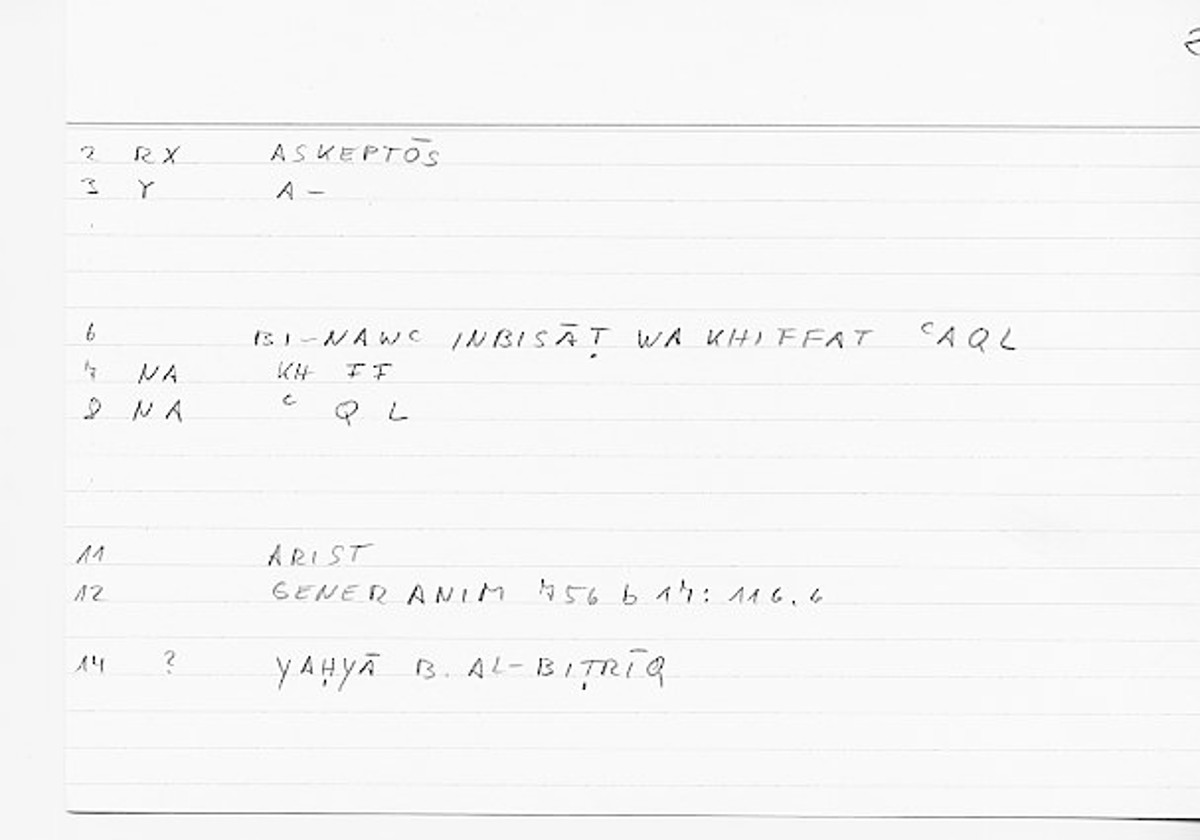 2 RX ASKEPTŌS
3 Y A-
6 BI-NAWC INBISĀṬ WA KHIFFAT ᶜAQL
7 NA KH FF
8 NA ᶜ Q L
11 ARIST
12 GENER ANIM 756 b 17: 116.6
14 ? YAḤYĀ B. AL-BIṬRĪQ